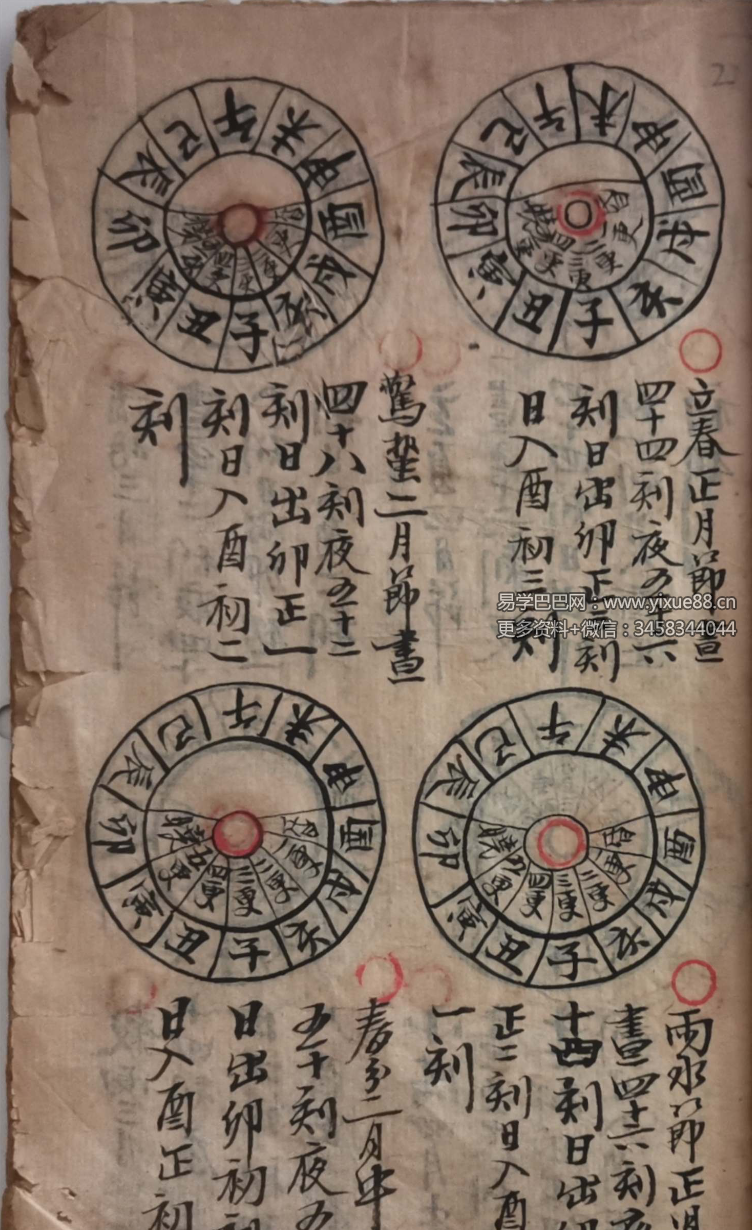 午未申酉戌亥子丑寅卯辰巳
昏一更二更三更四更五更曉
立春正月節晝
四十四刻夜五十六
刻日出卯正三刻
日入酉初三刻
午未申酉戌亥子丑寅卯辰巳
昏一更二更三更四更五更曉
驚蟄二月節晝
四十八刻夜五十二
刻日出卯正一
刻日入酉初二
刻
易学巴巴网：www.yixue88.cn
更多资料+微信：3458344044
午未申酉戌亥子丑寅卯辰巳
昏一更二更三更四更五更曉
雨水節正月
晝四十六刻夜
十四刻日出卯
正二刻日入酉
一刻
午未申酉戌亥子丑寅卯辰巳
昏一更二更三更四更五更曉
春分二月中
五十刻夜五
日出卯初初
日入酉正初